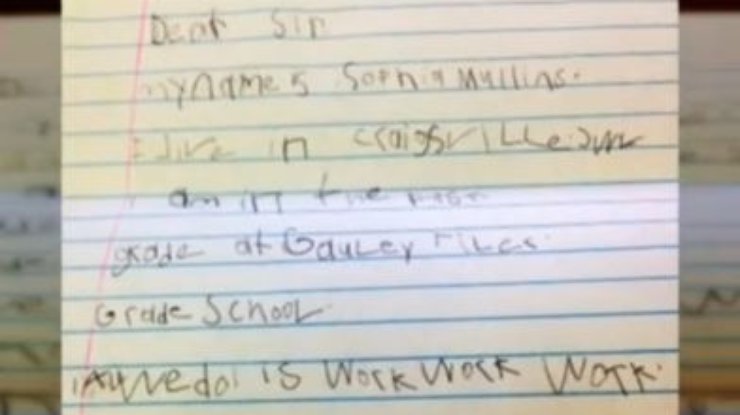 Dear Sir
my name s Sophia Mullins.
I live in Craigsville WV
am in the first
grade at Gauley River
Grade School
All we do is Work Work Work.